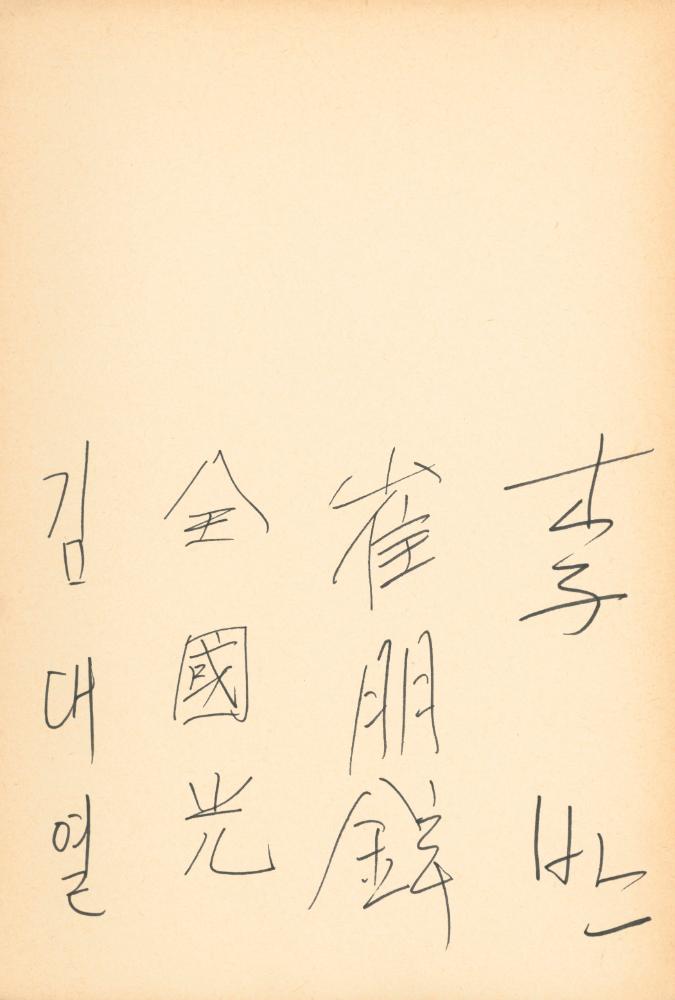 李 반
崔朋
全國光
김대열